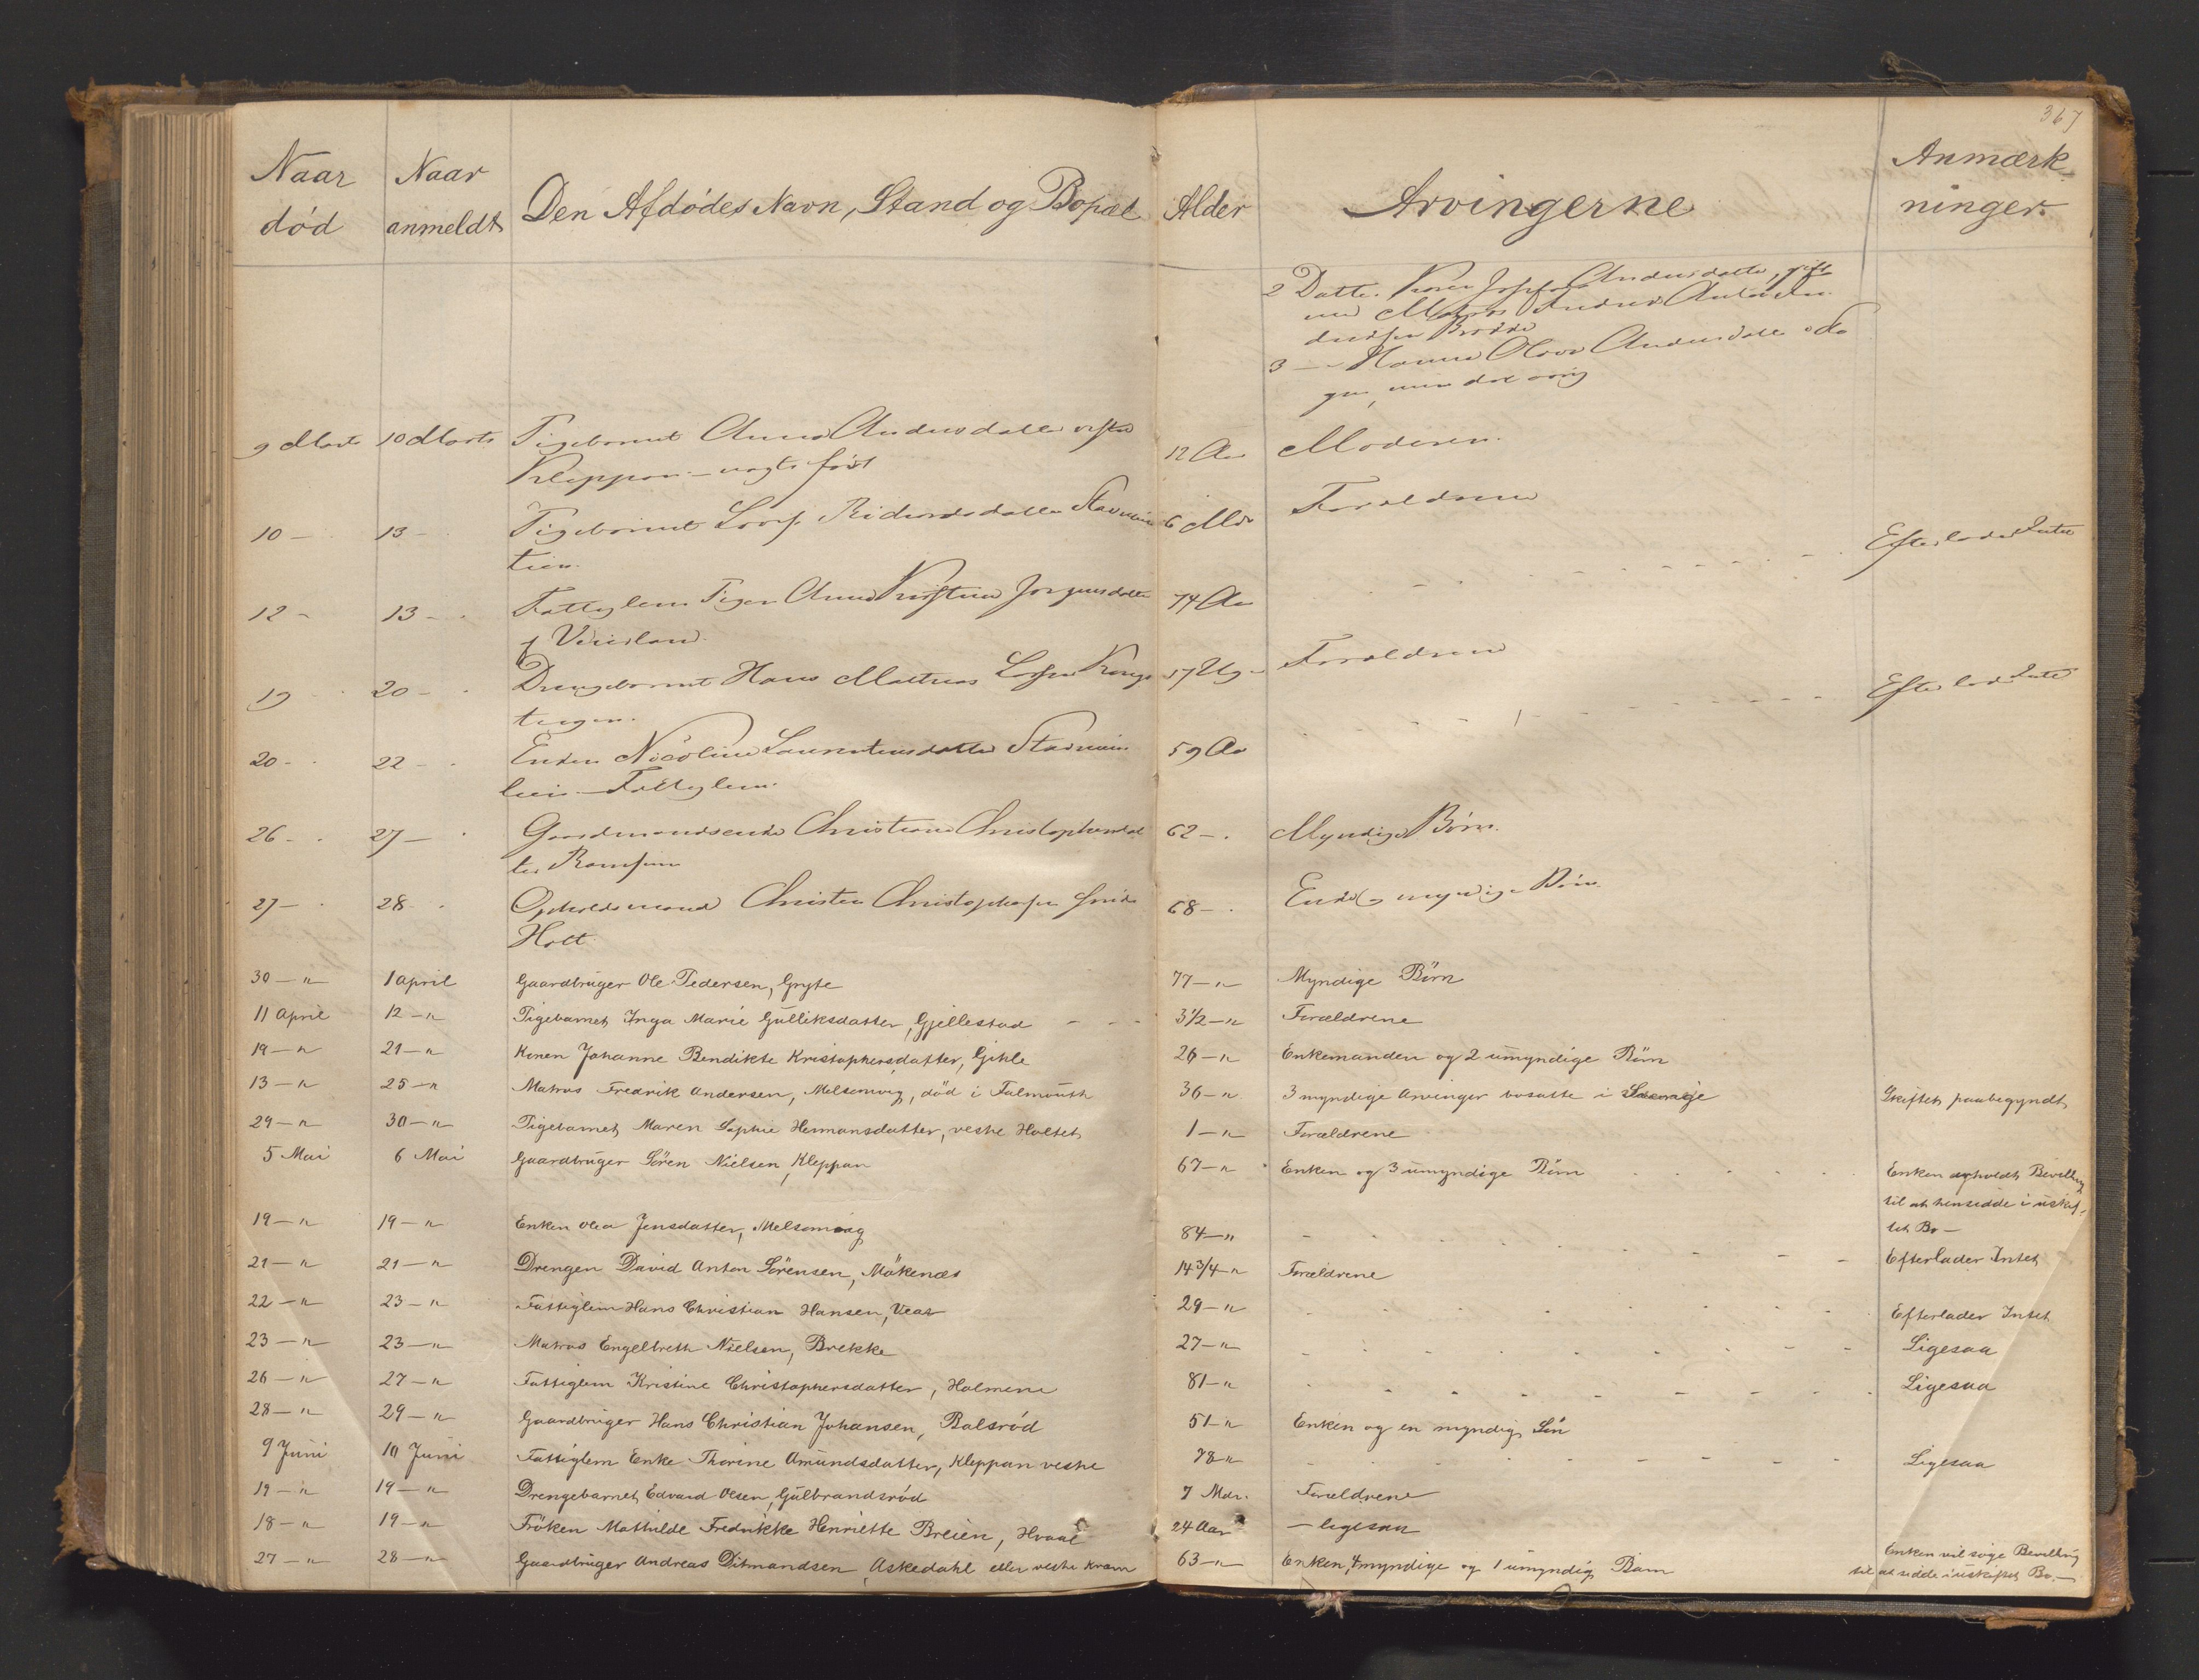 367
Naar død
Naar anmeldt
Den Afdødes Navn, Stand og Bopæl
Alder
Arvingerne
Anmærkninger
2 Datter Andersdatter, gift
med Matros
3 — Hanna Andersdatter
9 Marts 10 Marts Pigebarnet Anna Andersdatter vestre 12 Aar Moderen
Kleppan
10 — 13 — Pigebarnet 6 Mdr Forældrene
12 — 13 — Fattiglem Pigen Anne Kristine Jørgensdatter 74 Aar Efterlader Intet
19 20 — Drengebarnet Hans Mathias 17 Ug Forældrene
20 — 22 — Enken Nicoline Laurentiusdatter 59 Aar Efterlader Intet
Fattiglem
26 — 27 — Gaardmandsenke Christiane Christophersdat 62 — Myndige Børn
ter
27 — 28 Opholdsmand Christen Christophersen 68 — Enke og myndige Børn
Holt
30 — " 1 April Gaardbruger Ole Pedersen, Gryte 77 — " Myndige Börn
11 April 12 — " Pigebarnet Inga Marie Gulliksdatter, Gjellestad 3 1/2 — " Forældrene
19 — " 21 — " Konen Johanne Bendikte Kristophersdatter, Gihle 26 — " Enkemanden og 2 umyndige Börn
13 — " 25 — " Matros Fredrik Andersen, Melsomvig, död i Falmouth 36 — " 3 myndige Arvinger bosatte i Skiftet paabegyndt
29 — " 30 — " Pigebarnet Maren Sophie Hermansdatter, vestre Holtet 1 — " Forældrene
5 Mai 6 Mai Gaardbruger Sören Nielsen, Kleppan 67 — " Enken og 3 umyndige Börn Enken Bevilling
til at hensidde i uskif-
tet Bo —
19 — " 19 — " Enken Olea Jensdatter, Melsomvig 84 — " Efterlader Intet
21 — " 21 — " Drengen David Anton Sörensen, Mökenæs 14 3/4 — " Forældrene
22 — " 23 — " Fattiglem Hans Christian Hansen, Vear 29 — " Efterlader Intet
23 — " 23 — " Matros Engelbreth Nielsen, Brekke 27 — " Ligesaa
26 — " 27 — " Fattiglem Kristine Christophersdatter, Holmene 81 — " Ligesaa
28 — " 29 — " Gaardbruger Hans Christian Johansen, Balsröd 51 — " Enken og en myndig Sön
9 Juni 10 Juni Fattiglem Enke Thorine Amundsdatter, Kleppan vestre 78 " Ligesaa
19 — " 19 — " Drengebarnet Edvard Olsen, Gulbrandsröd 7 Mdr. Forældrene
18 — " 19 — " Fröken Mathilde Fredrikke Henriette Breien, Hvaal 24 Aar — ligesaa
27 — " 28 — " Gaardbruger Andreas Ditmandsen, Askedahl eller vestre Kravn 63 — " Enken, 4 myndige og 1 umyndig Barn Enken vil söge Bevilling
til at sidde i uskiftet Bo. —